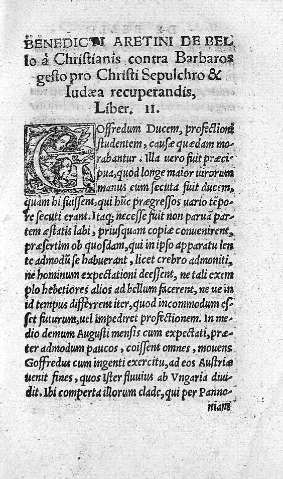 BENEDICTI ARETINI DE BEL
lo à Christianis contra Barbaros
gesto pro Christi Sepulchro &
Iudæa recuperandis,
Liber. II.
GOffredum Ducem, profectioni
studentem, causæ quædam mo
rabantur. Illa uero fuit præci
pua, quod longe maior uirorum
manus eum secuta fuit ducem,
quam hi fuissent, qui huc prægressos uario tẽpo
re secuti erant. Itaq; necesse fuit non parua par
tem æstatis labi, priusquam copiæ conuenirent,
præsertim ob quosdam, qui in ipso apparatu len
te admodũ se habuerant, licet crebro admoniti,
ne hominum expectationi deessent, ne tali exem
plo hebetiores alios ad bellum facerent, ne ue in
id tempus differrent iter, quod incommodum es
set futurum, uel impediret profectionem. In me
dio demum Augusti mensis cum expectati, præ
ter admodum paucos, coissent omnes, mouens
Goffredus cum ingenti exercitu, ad eos Austriæ
uenit fines, quos Ister fluuius ab Vngaria diui
dit. Ibi comperta illorum clade, qui per Panno-
nians